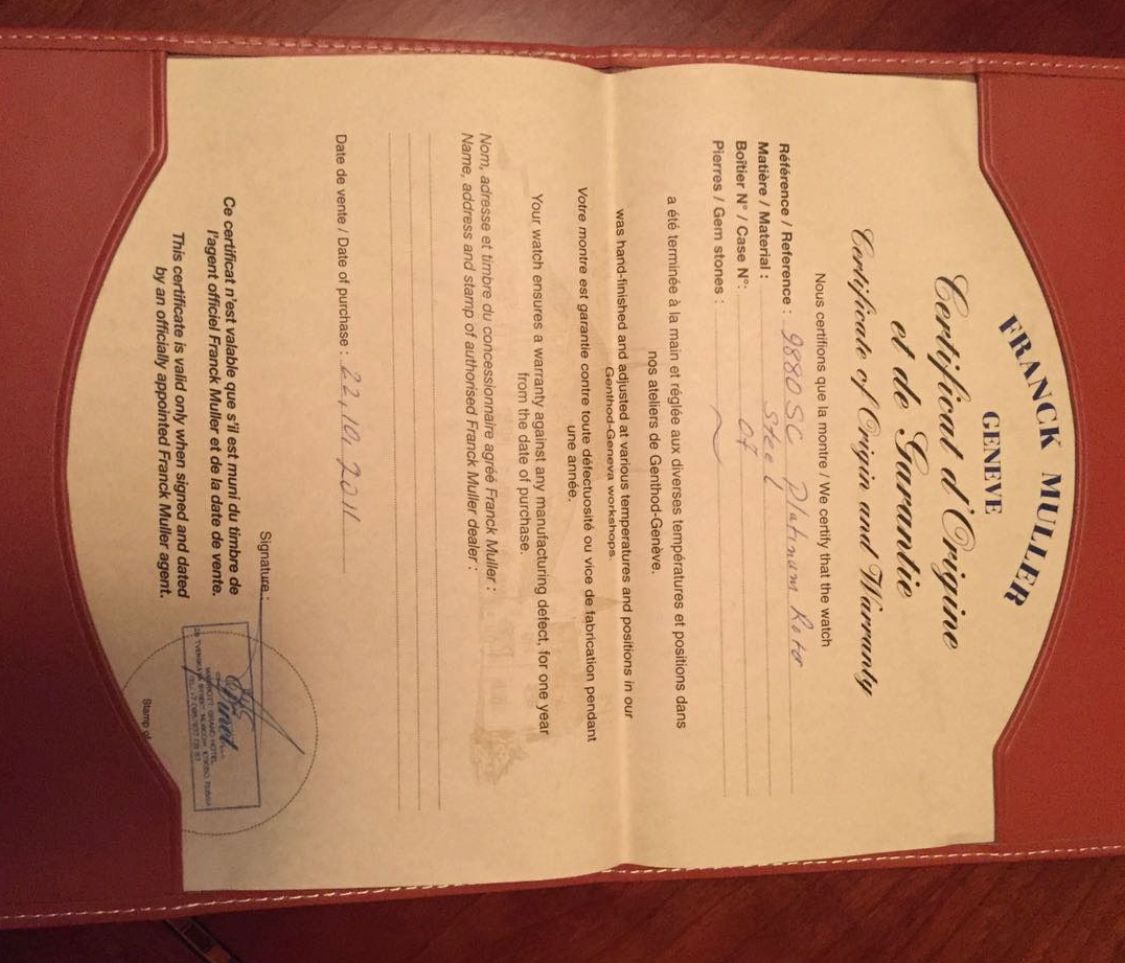 FRANCK MULLER
GENEVE
Certificat d'Origine
et de Garantie
Certificate of Origin and Warranty
Nous certifions que la montre / We certify that the watch
Référence / Reference : 9880 SC Platinum Rotor
Matière / Material : Steel
Boîtier N° / Case N°: 07
Pierres / Gem stones : ~
a été terminée à la main et réglée aux diverses températures et positions dans
nos ateliers de Genthod-Genève.
was hand-finished and adjusted at various temperatures and positions in our
Genthod-Geneva workshops.
Votre montre est garantie contre toute défectuosité ou vice de fabrication pendant
une année.
Your watch ensures a warranty against any manufacturing defect, for one year
from the date of purchase.
Nom, adresse et timbre du concessionnaire agréé Franck Muller :
Name, address and stamp of authorised Franck Muller dealer :
Date de vente / Date of purchase : 22.10.2011
Signature :
Ce certificat n'est valable que s'il est muni du timbre de
l'agent officiel Franck Muller et de la date de vente.
This certificate is valid only when signed and dated
by an officially appointed Franck Muller agent.
MARRIOTT GRAND-HOTEL
Stamp of